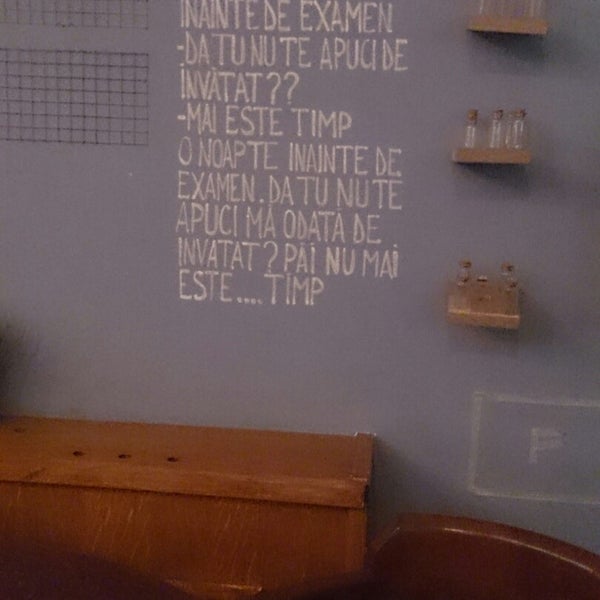 INAINTE DE EXAMEN
-DA TU NU TE APUCI DE
INVĂTAT??
-MAI ESTE TIMP
O NOAPTE INAINTE DE
EXAMEN. DA TU NU TE
APUCI MĂ ODATĂ DE
INVATAT? PĂI NU MAI
ESTE.... TIMP